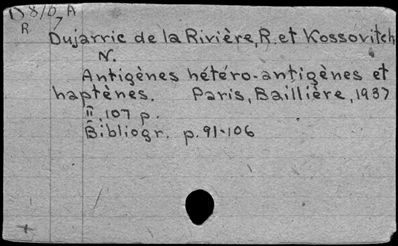 R
Dujarric de la Rivière, R. et Kossovitch
N.
Antigènes hétéro-antigènes et
haptènes. Paris, Baillière, 1937
II, 107 p.
Bibliogr. p. 91-106